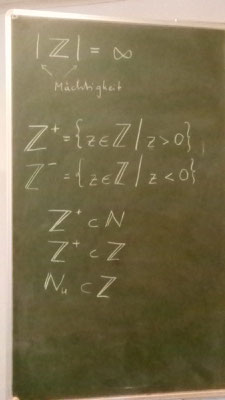 |ℤ| = ∞
Mächtigkeit
ℤ⁺ = {z∈ℤ | z>0},
ℤ⁻ = {z∈ℤ | z<0}
ℤ⁺ ⊂ ℕ
ℤ⁺ ⊂ ℤ
ℕᵤ ⊂ ℤ